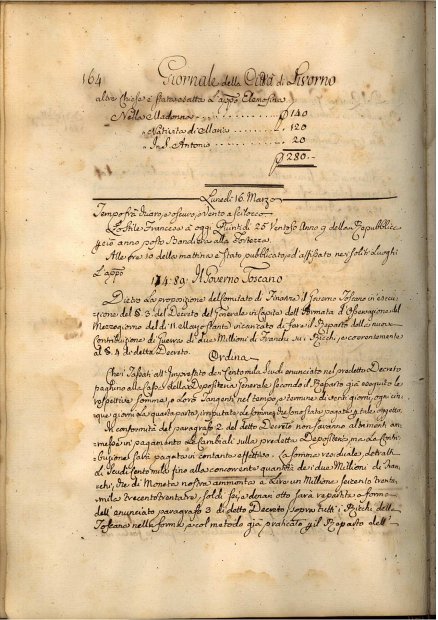 164 Giornale della Città di Livorno
altre Chiese è stata fatta l'app.ª Elemosina
Nella Madonna 140
Natività di Maria 120
In S. Antonio 20
280
Lunedì 16. Marzo
Tempo frà chiaro, e oscuro, e Vento a Scilocco
Lo Stile Francese à oggi Punti dì 25 Ventoso Anno 9 della Repubblic.
e ciò anno posto Bandiera alla Fortezza.
Alle ore 10 della mattina è stato pubblicato, ed affissato nei soliti luoghi
l'app.º
174:89: Il Governo Toscano
Dietro la proposizione del Comitato di Finanze il Governo Toscano in esecu-
zione del §. 3 del Decreto del Generale in Capite dell'Armata d'Osservazione del
Mezzogiorno del dì 11. allog.º stante incaricato di fare il Reparto della nuova
Contribuzione di Guerra di due Millioni di Franchi su i Ricchi, e coerentemente
al §. 1 di detto Decreto.
Ordina
Che i Tassati all'Imprestito dei Cento mila Scudi enunciato nel predetto Decreto
paghino alla Cassa della Depositeria Generale secondo il Reparto già eseguito le
respettive somme, e loro Tangenti nel tempo, e termine di venti giorni, ogni cin-
que giorni la quarta parte, imputate le somme, che fossero state pagate a tale oggetto.
In conformità del paragrafo 2. del detto Decreto non saranno altrimenti am-
messe in pagamento le Cambiali sulla predetta Depositeria, ma la Contri-
buzione sarà pagata in contante effettivo. La somma residuale, detratti
li Scudi Cento mila fino alla concorrente quantità dei due Millioni di Fran-
chi, che di Moneta nostra ammonta a Lire un Millione seicento trenta
mila trecento trentatre, soldi sei, e denari otto sarà repartita a forma
dell'enunciato paragrafo 3 di detto Decreto sopra tutti i Ricchi della
Toscana nella forma, e col metodo già praticato p. il Reparto dell'